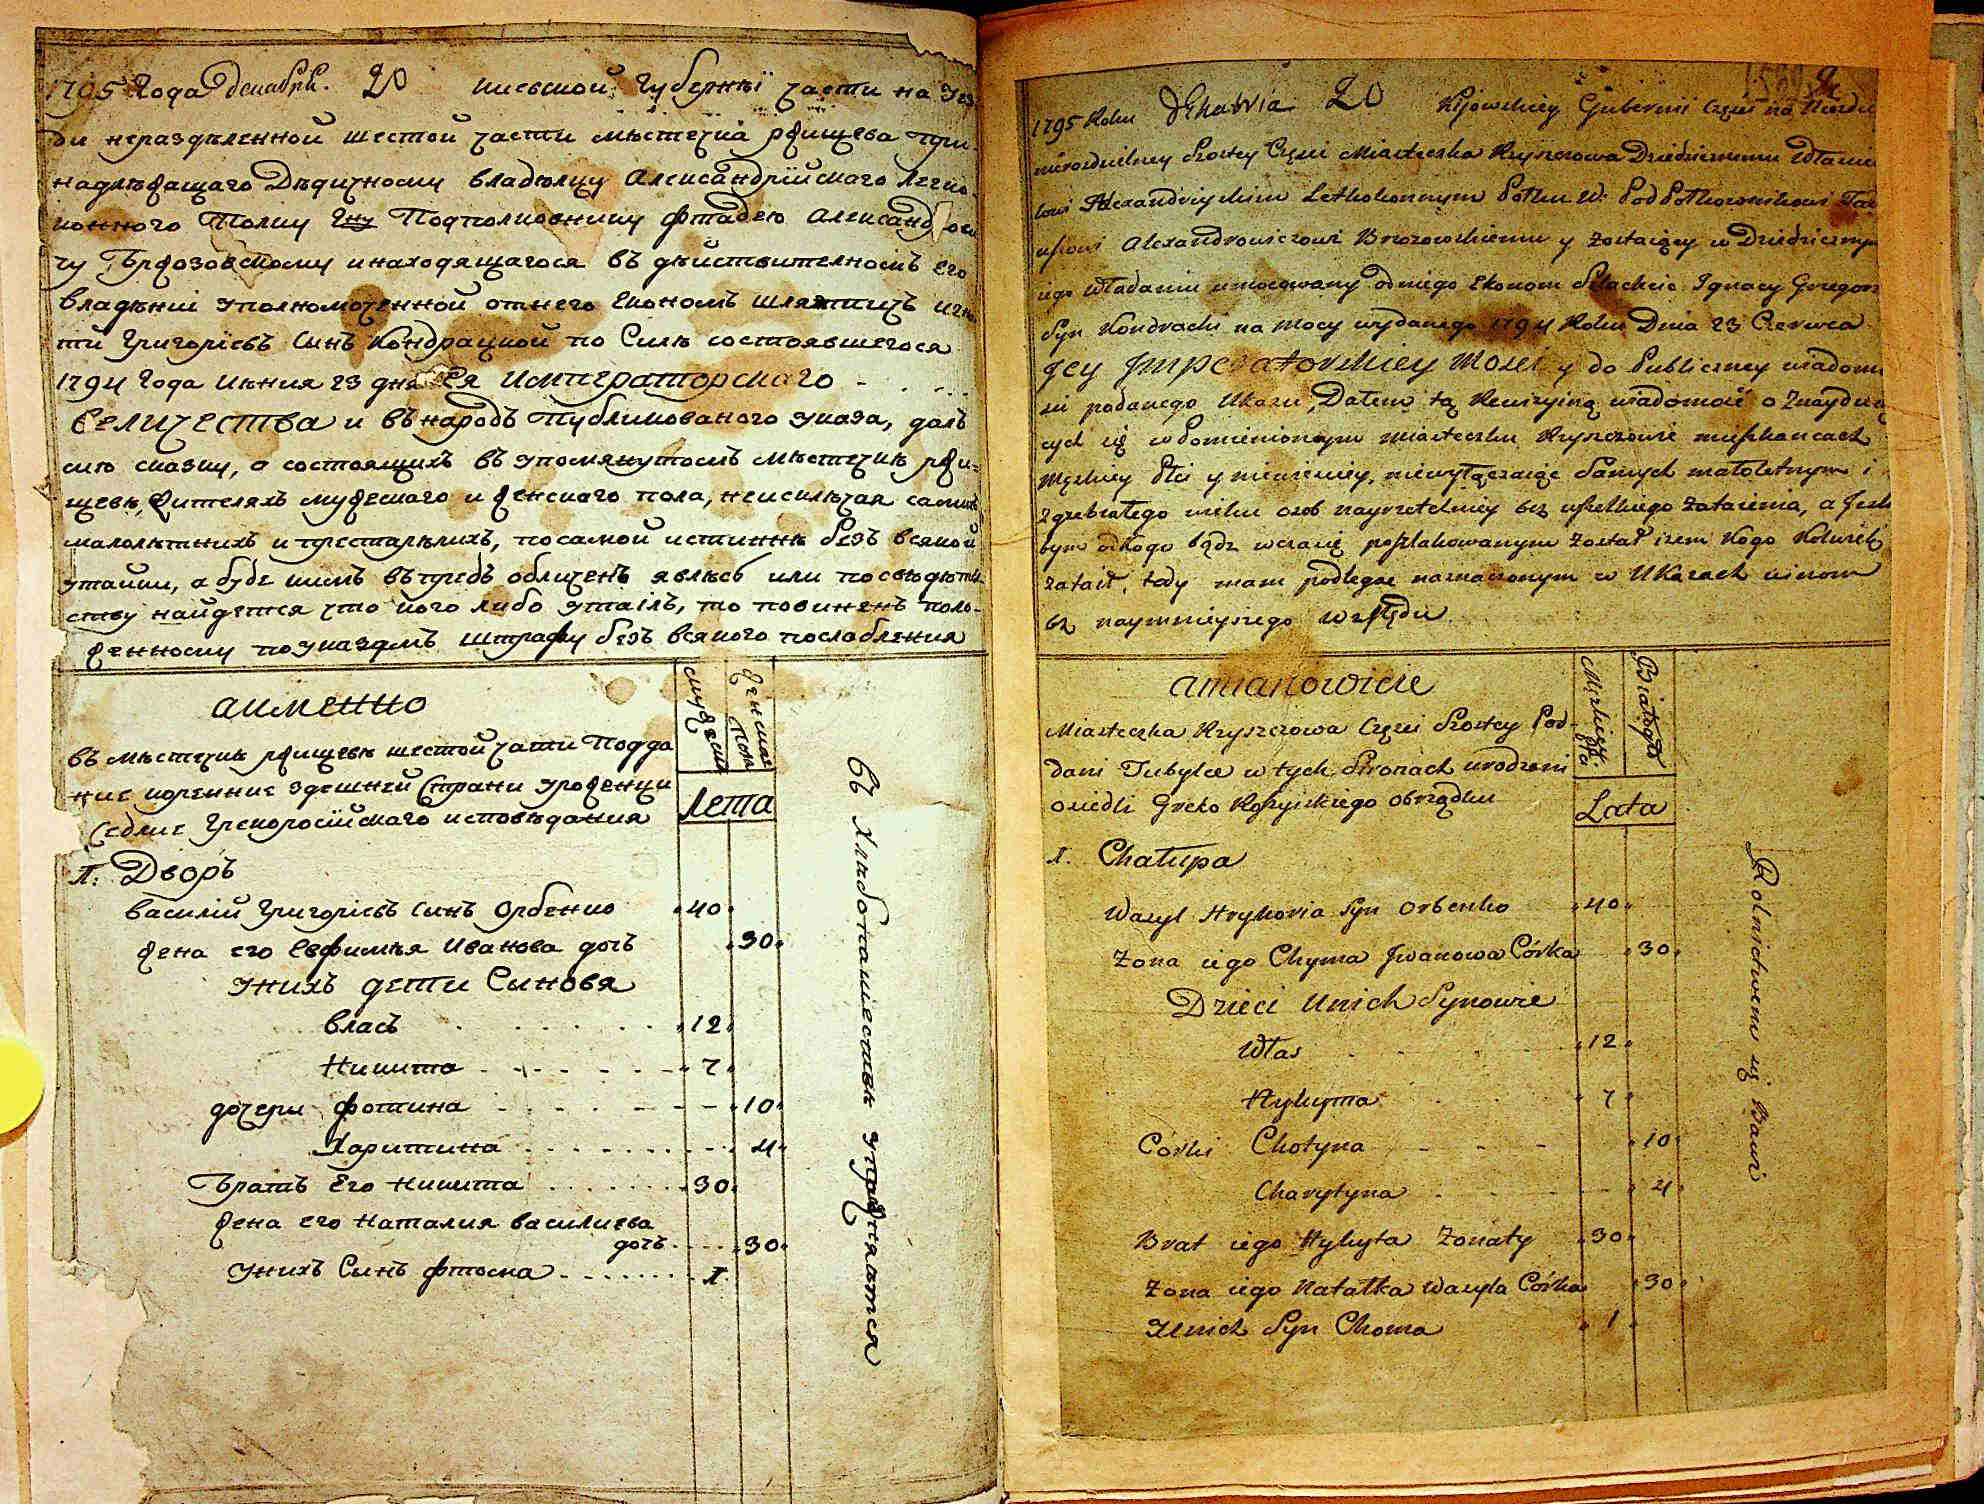 1795 Года декабря. 20 киевской губернїи части на Уез
ди нераздѣленной шестой части мѣстечка ржищева при
надлѣжащаго Дѣдичному владѣлцу Александрїйскаго легко
конного Полку Гну Подполковнику фтадею Александрови
чу Бржозовскому инаходящагося въ дѣйствителномъ его
владѣнїи уполномоченной отнего Економъ шляхтичъ игна
тїй Григорїевъ Сынъ Кондрацкой по Силѣ состоявшегося
1794 Года июния 23 дня Ея Императорскаго
Величества и въ народъ Публикованого указа, далъ
сию сказку, о состоящихъ въ упомянутомъ мѣстечкѣ ржи=
щевѣ, жителяхъ мужескаго и женскаго пола, неисключая самихъ
малолѣтнихъ и престарѣлихъ, посамой истиннѣ безъ всякой
утайки, а буде кимъ въпредъ обличенъ явлюсь или посвѣдѣтел
ству найдется что кого либо утаїлъ, то повиненъ поло-
женному поуказомъ штрафу безъ всякого послабления
аименно
мужеска
женска Пола
въ мѣстечкѣ ржищевѣ шестой части Подда
ние коренние здешней Страни уроженци
Седлие Грекоросїйскаго исповѣдания
Лета
1: Дворъ
василїй Григорїевъ сынъ Орбенко 40
жена его Евфимѣя Иванова дочъ 30
Унихъ дети Сыновя
власъ 12
Никита 7
дочери фотина 10
Харитина 4
Братъ Его никита 30
жена его наталия василиева
дочъ 30
Унихъ Сынъ фтома 1
въ Хлѣбопашествѣ упражняются
1795 Roku dekabria 20 Kijowskiey Gubernii Częsci na Uiezdu
nierozdzielney Szostey Częsci Miasteczka Rzyszczowa Dziedzicznemu Włascicie
lowi Alexandryiskim Lethokonnym Połku W: Pod Połkownikowi Tad
eusiowi Alexandrowiczowi Brzozowskiemu y zostaiącey w Dziedzicznym
iego Władaniu umocowany odniego Ekonom Szlachcic Ignacy Gregorz
Syn Kondracki na mocy wydanego 1794 Roku Dnia 23 Czerwca
Jey Imperatorskiey Mosci y do Publiczney wiadomo
sci podanego Ukazu, Datem tą Rewizyiną wiadomość o Znaydui
cych się wpomienionym miasteczku Rzyszczowie mieszkancach
Męzkiey Płci y niewiesciey, niewyłączaiąc Samych małoletnym i
zgrzybiałego wieku osob nayrzetelniey bez wszelkiego zataienia, a Jesli
bym odkogo bądz wczasię poszlakowanym został izem Kogo Kolwiek
zataił, tedy mam podlegac naznaczonym w Ukazach winom
bez naymnieyszego względu
amianowicie
Męzkiey Płci
Białogło
Miasteczka Rzyszczowa Częsci Szostey Pod-
dani Tubylce w tych Stronach urodzeni
osiedli Greko Roszyiskiego obrządku
Lata
1. Chałupa
Wasyl Hryhoria Syn Orbenko 40
Zona iego Chyma Jwanowa Córka 30
Dzieci Unich Synowie
Włas 12
Mykyta 7
Córki Chotyna 10
Charytyna 4
Brat iego Mykyta Zonaty 30
Zona iego Natałka Wasyla Córka 30
Unich Syn Choma 1
Rolnictwem się Bawi